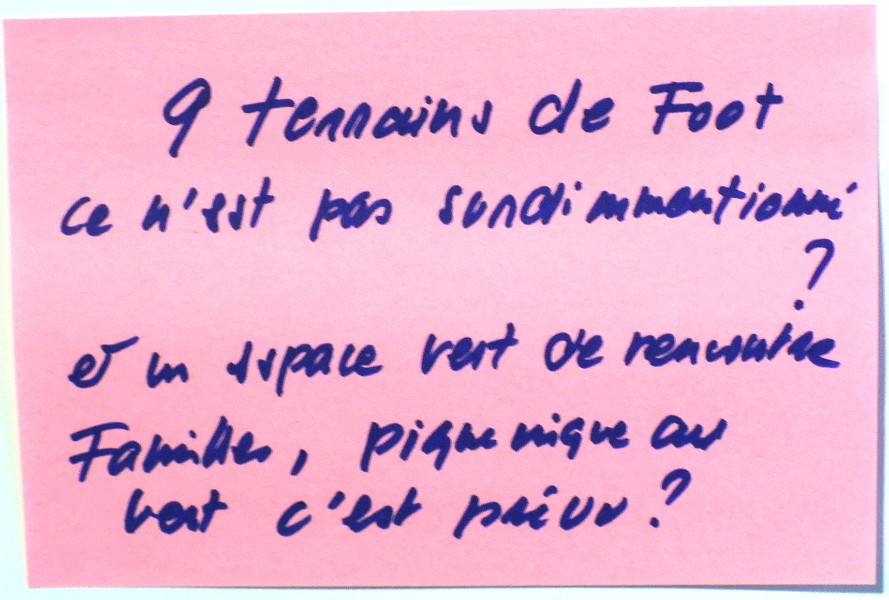 9 terrains de Foot
ce n'est pas surdimmentionné
?
et un espace vert de rencontre
Familles, piquenique au
vert c'est prévu?